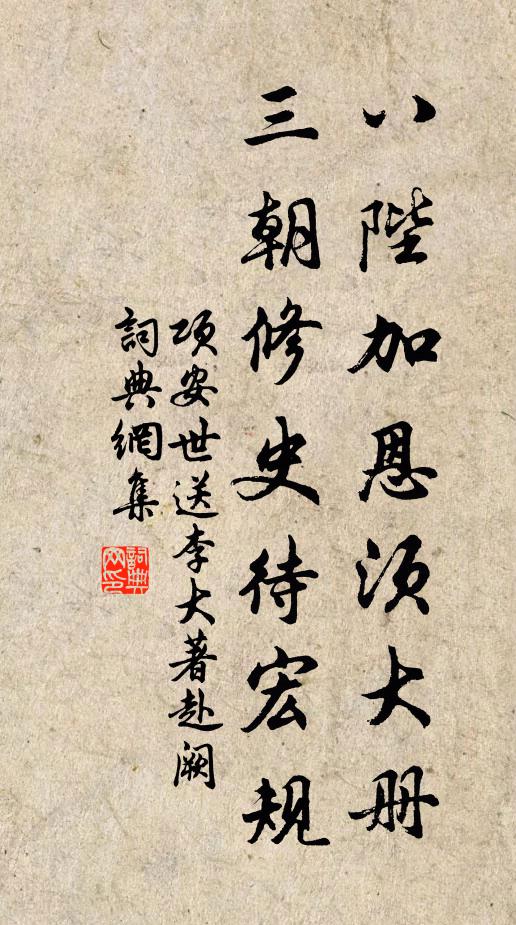 八陛加恩須大册
三朝修史待宏規
項安世送李大著赴闕
詞典網集
詞典网印